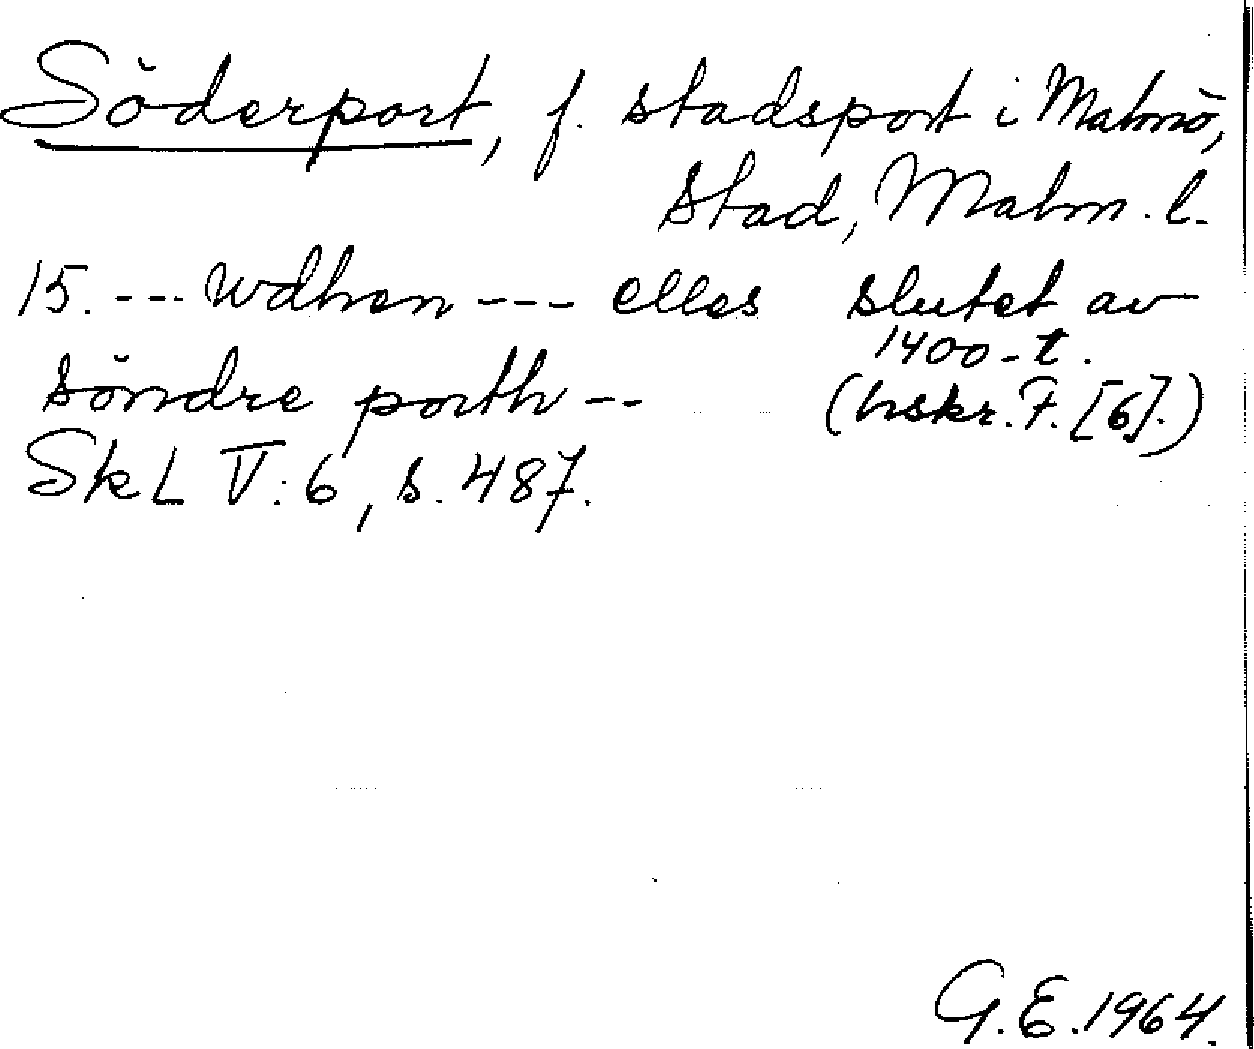 Söderport, f. stadsport i Malmö,
stad, Malm. l.
15. --- wdhen --- elles slutet av
1400-t.
söndre porth -- (hskr. F. [6].)
SkL V:6, s. 487.
G.E. 1964.